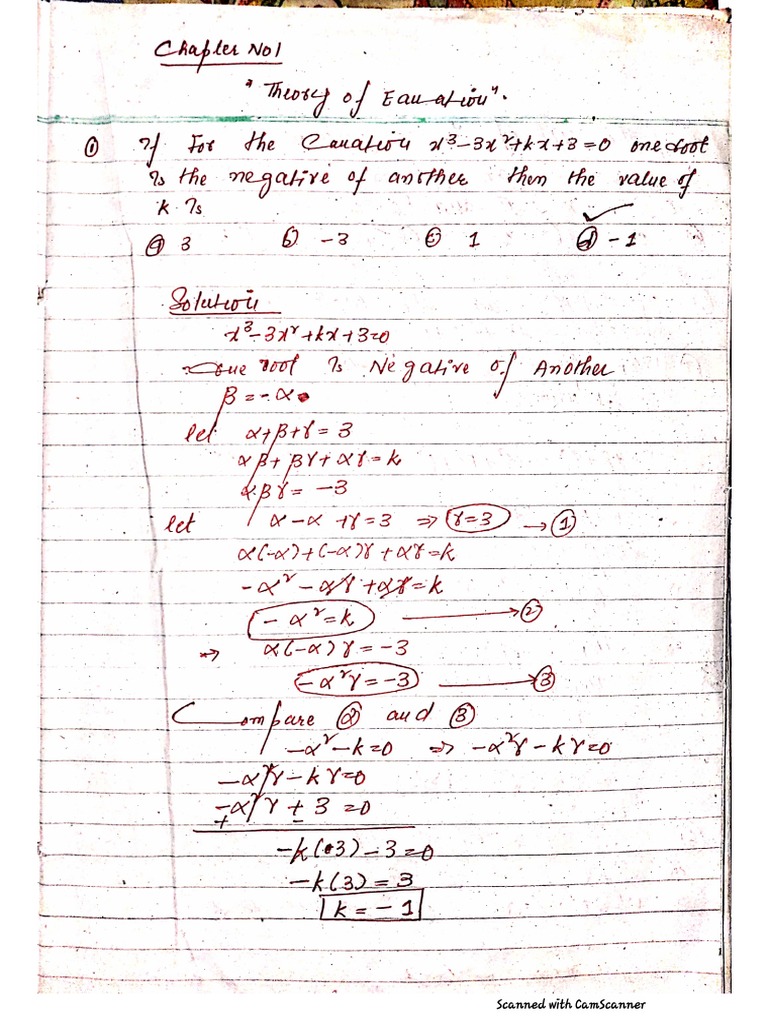 Chapter No1
"Theory of Equation".
① If For the Equation x³-3x²+kx+3=0 one root
Is the negative of another then the value of
k Is
ⓐ 3 ⓑ -3 ⓒ 1 ⓓ -1
Solution
x³-3x²+kx+3=0
one root Is Negative of Another
β=-α
let α+β+γ=3
αβ+βγ+αγ=k
αβγ=-3
let α-α+γ=3 ⇒ γ=3 → ①
α(-α)+(-α)γ+αγ=k
-α²-αγ+αγ=k
-α²=k → ②
⇒ α(-α)γ=-3
-α²γ=-3 → ③
Compare ② and ③
-α²-k=0 ⇒ -α²γ-kγ=0
-α²γ-kγ=0
-α²γ+3=0
+ -
-k(3)-3=0
-k(3)=3
k=-1
Scanned with CamScanner